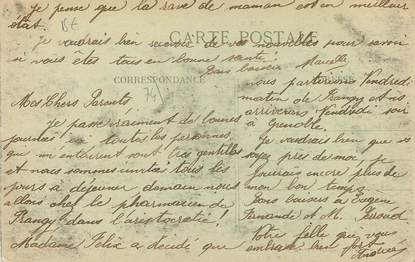 je pense que la rave de maman est en meilleur
état.
Je voudrais bien recevoir de vos nouvelles pour savoir
si vous êtes tous en bonne santé!
CARTE POSTALE
CORRESPONDANCE
Mes Chers Parents
Je passe vraiment de bonnes
journées! toutes les personnes
qui m'entourent sont très gentilles
et nous sommes invités tous les
jours à déjeuner demain nous
allons chez le pharmacien de
Frangy dans l'aristocratie!
Madame Félix a décidé que
nous partirons Vendredi
matin de Frangy et ns
arriverons Vendredi soir
à Grenoble.
Je voudrais bien que vs
soyez près de moi, je
jouirais encore plus de
mon bon temps.
Bons baisers à Eugène
Fernande et M.
Votre fille qui vous
embrasse bien fort